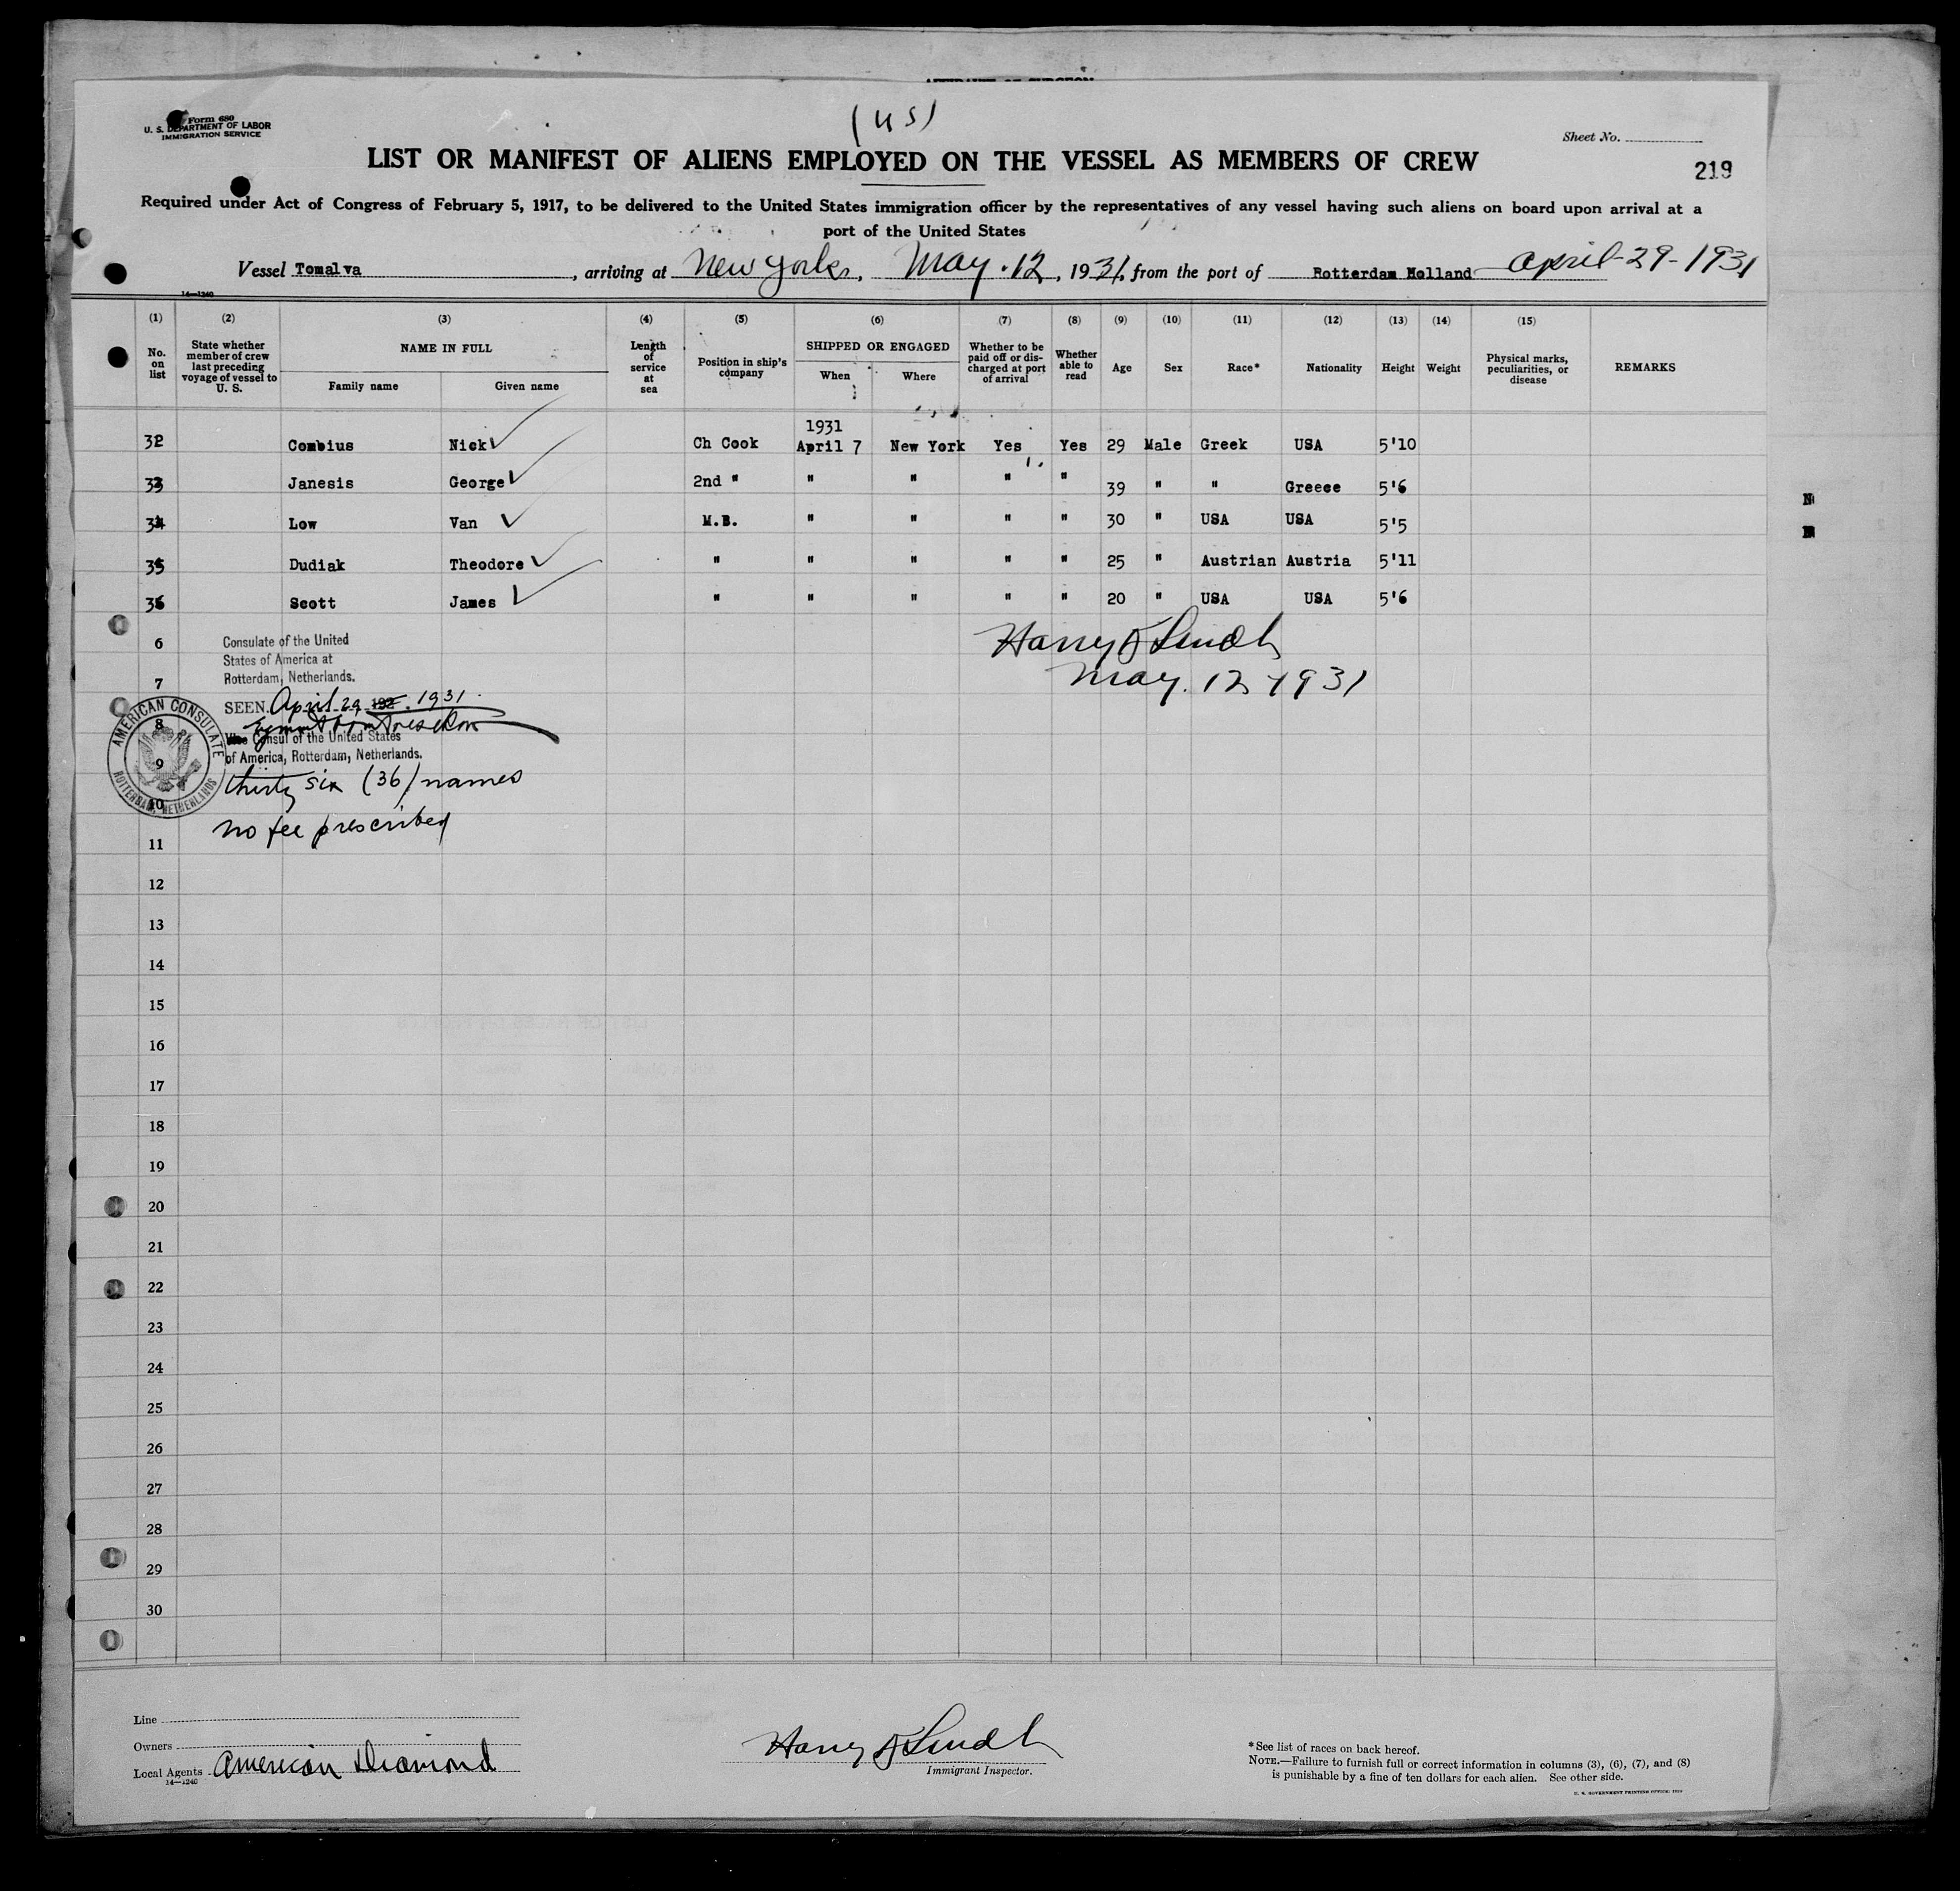 AFFIDAVIT OF SURGEON
Form 680
U. S. DEPARTMENT OF LABOR
IMMIGRATION SERVICE
(US)
Sheet No.
LIST OR MANIFEST OF ALIENS EMPLOYED ON THE VESSEL AS MEMBERS OF CREW
219
Required under Act of Congress of February 5, 1917, to be delivered to the United States immigration officer by the representatives of any vessel having such aliens on board upon arrival at a
port of the United States
Vessel Tomalva, arriving at New York, May. 12, 1931, from the port of Rotterdam Holland April-29-1931
14—1240
(1) (2) (3) (4) (5) (6) (7) (8) (9) (10) (11) (12) (13) (14) (15)
No. on list
State whether member of crew last preceding voyage of vessel to U. S.
NAME IN FULL
Family name Given name
Length of service at sea
Position in ship's company
SHIPPED OR ENGAGED
When Where
Whether to be paid off or discharged at port of arrival
Whether able to read
Age
Sex
Race*
Nationality
Height
Weight
Physical marks, peculiarities, or disease
REMARKS
1931
32 Combius Nick Ch Cook April 7 New York Yes Yes 29 Male Greek USA 5'10
33 Janesis George 2nd " " " " " 39 " " Greece 5'6
34 Low Van M.B. " " " " 30 " USA USA 5'5
35 Dudiak Theodore " " " " " 25 " Austrian Austria 5'11
36 Scott James " " " " " 20 " USA USA 5'6
6
Harry Lindh
May. 12, 1931
Consulate of the United
States of America at
Rotterdam, Netherlands.
7
SEEN April 29 192 . 1931.
8
Vice Consul of the United States
of America, Rotterdam, Netherlands.
AMERICAN CONSULATE
ROTTERDAM, NETHERLANDS
9
thirty six (36) names
10
no fee prescribed
11
12
13
14
15
16
17
18
19
20
21
22
23
24
25
26
27
28
29
30
Line
Owners
Local Agents American Diamond
14—1240
Harry Lindh
Immigrant Inspector.
*See list of races on back hereof.
NOTE.—Failure to furnish full or correct information in columns (3), (6), (7), and (8)
is punishable by a fine of ten dollars for each alien. See other side.